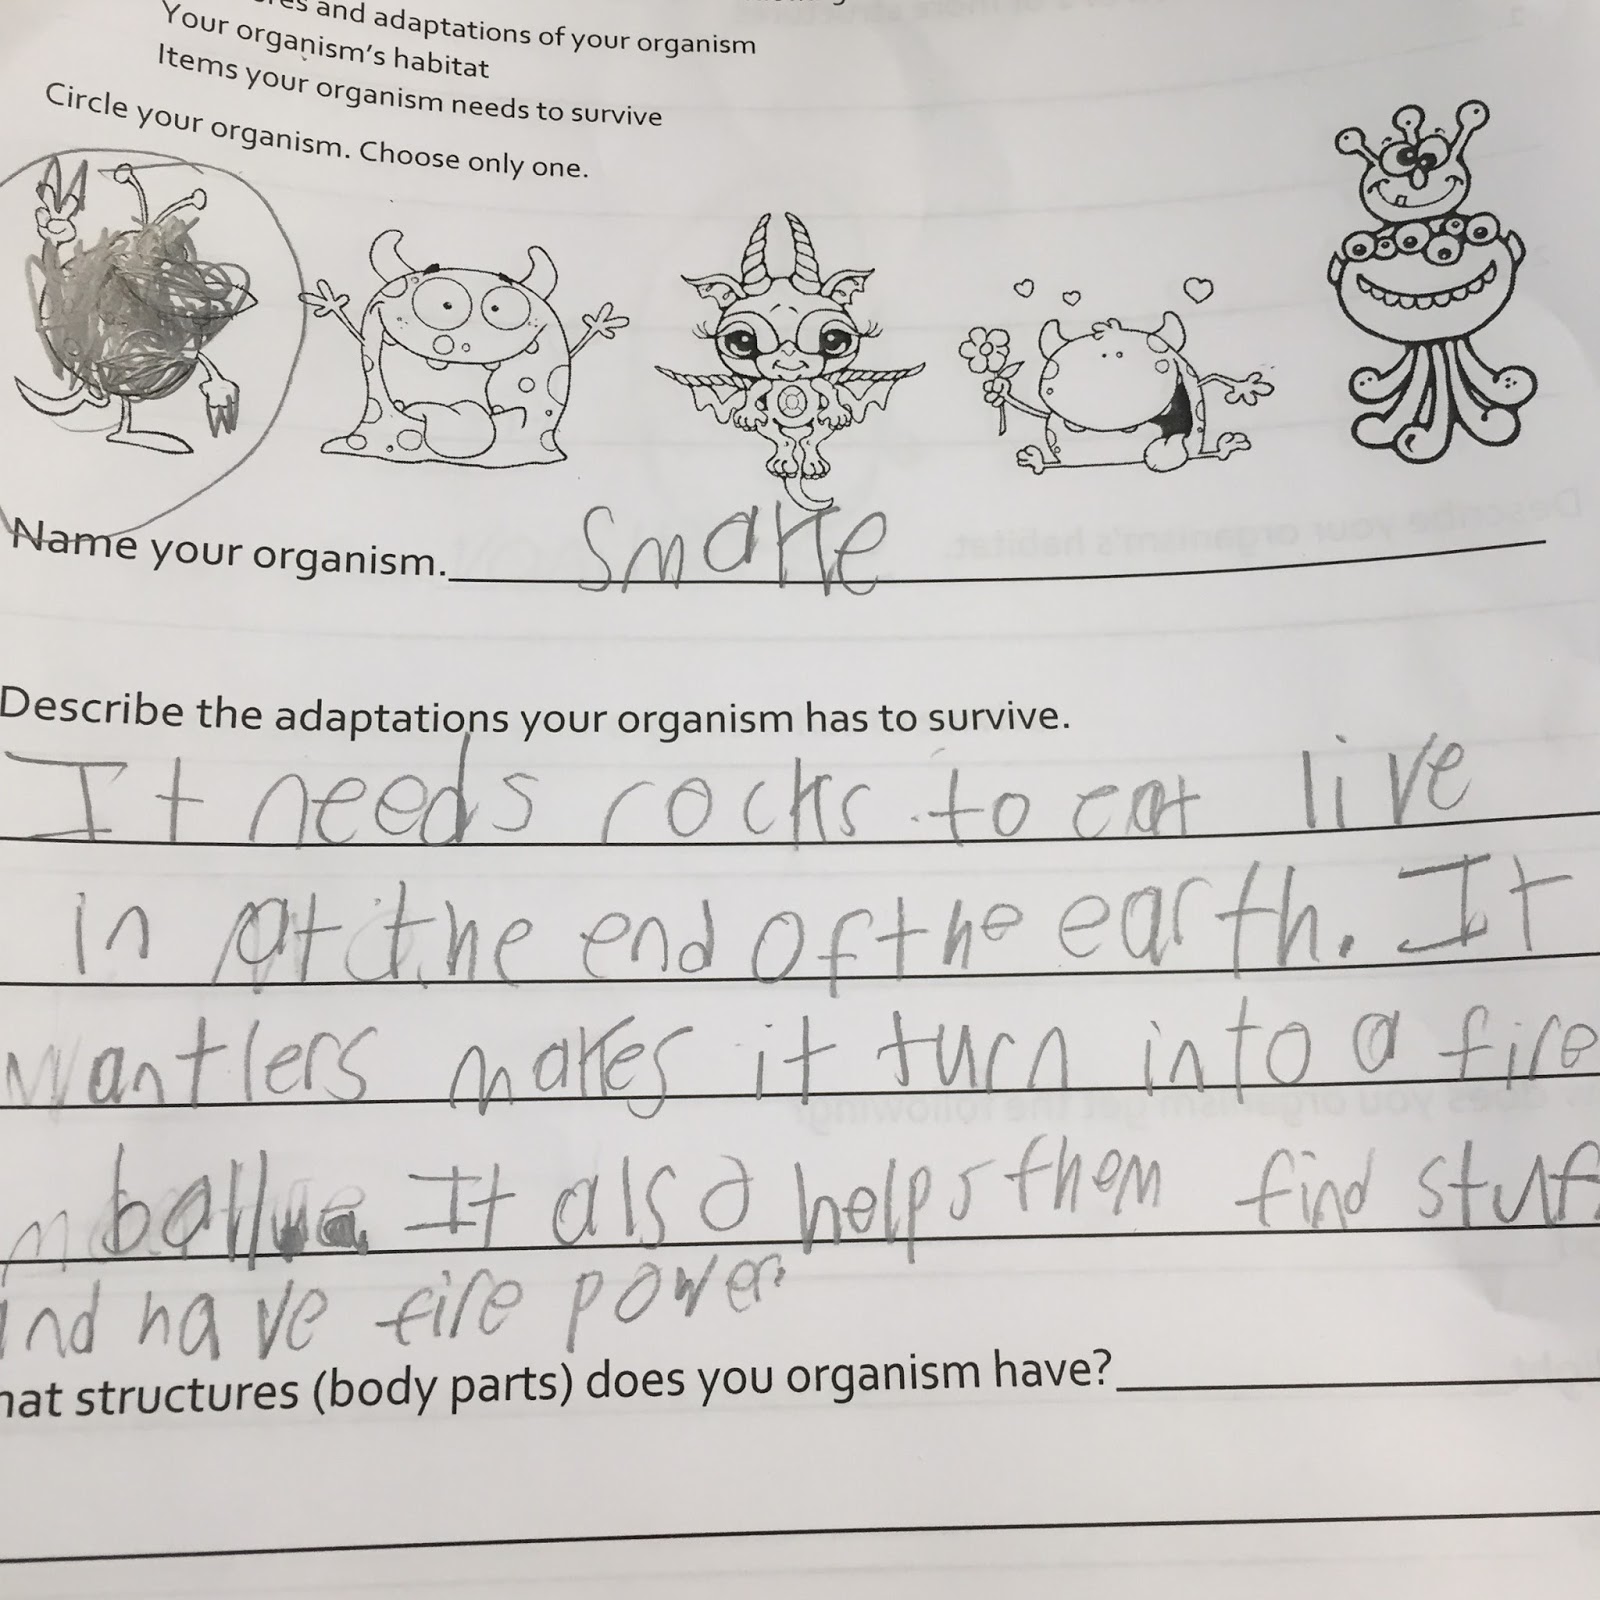 and adaptations of your organism
Your organism's habitat
Items your organism needs to survive
Circle your organism. Choose only one.
Name your organism. Smake
Describe the adaptations your organism has to survive.
It needs rocks to eat live
in at the end of the earth. It
antlers makes it turn into a fire
ball. It also helps them find stuff
and have fire power.
structures (body parts) does you organism have?